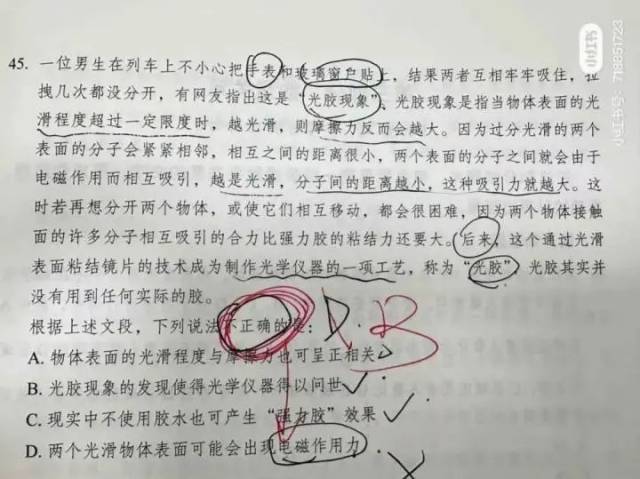 小红书
小红书号：718951723
45. 一位男生在列车上不小心把手表和玻璃窗户贴上，结果两者互相牢牢吸住，拉
拽几次都没分开，有网友指出这是“光胶现象”。光胶现象是指当物体表面的光
滑程度超过一定限度时，越光滑，则摩擦力反而会越大。因为过分光滑的两个
表面的分子会紧紧相邻，相互之间的距离很小，两个表面的分子之间就会由于
电磁作用而相互吸引，越是光滑，分子间的距离越小，这种吸引力就越大。这
时若再想分开两个物体，或使它们相互移动，都会很困难，因为两个物体接触
面的许多分子相互吸引的合力比强力胶的粘结力还要大。后来，这个通过光滑
表面粘结镜片的技术成为制作光学仪器的一项工艺，称为“光胶”，光胶其实并
没有用到任何实际的胶。
根据上述文段，下列说法不正确的是： D. B
A. 物体表面的光滑程度与摩擦力也可呈正相关
B. 光胶现象的发现使得光学仪器得以问世
C. 现实中不使用胶水也可产生“强力胶”效果
D. 两个光滑物体表面可能会出现电磁作用力